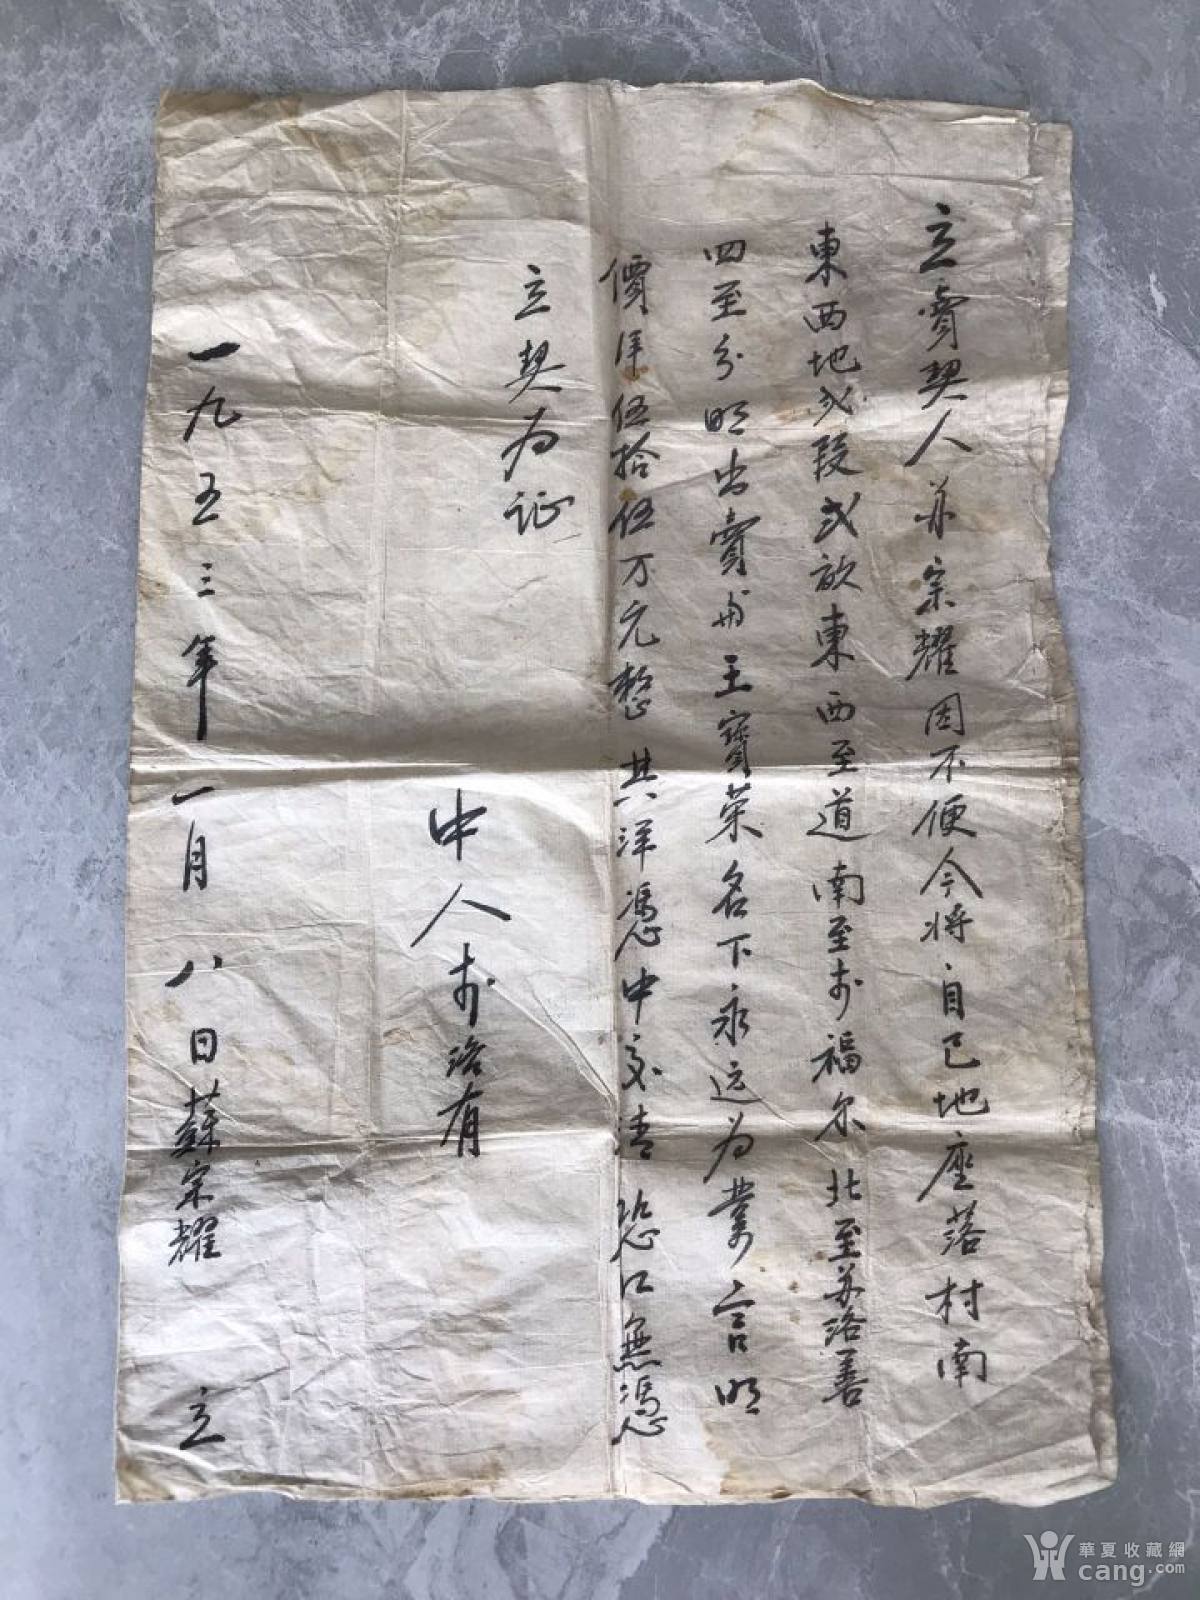 立賣契人苏宗耀因不便今将自己地座落村南
東西地弍段弍畝東西至道南至 福尔北至苏洛善
四至分明出賣与王寳荣名下永远为業言明
價洋伍拾伍万元整共洋憑中交清恐口無憑
立契为证
中人 洛有
一九五三年一月八日蘇宗耀 立
華夏收藏網
cang.com